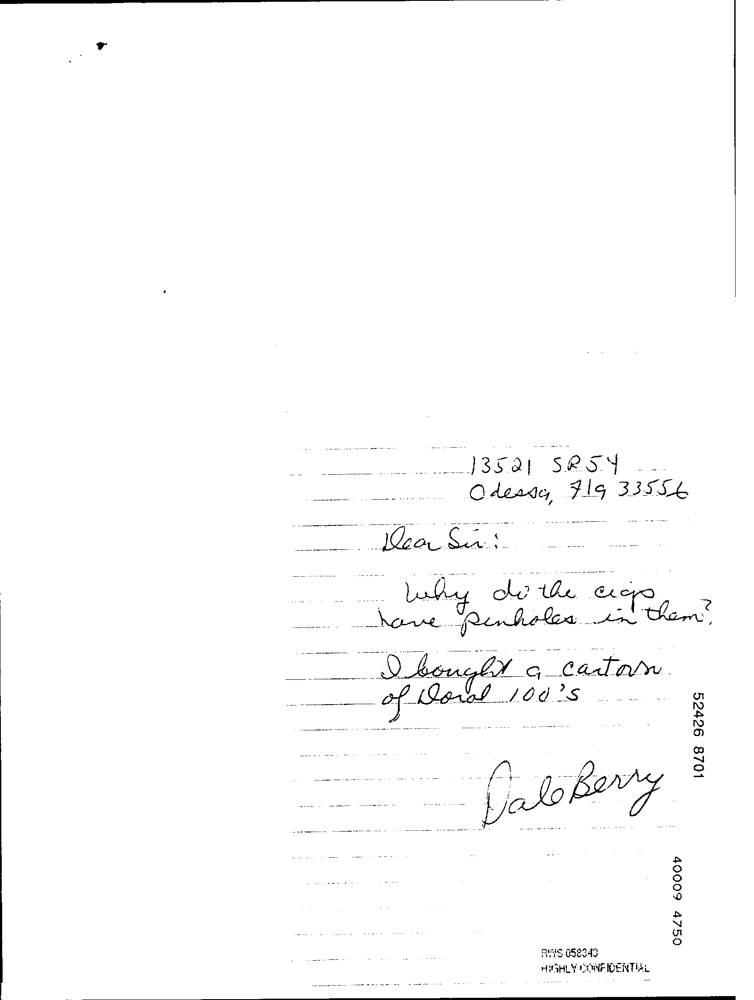 13521 SR54
Odessa, Fla 33556
Dear Sir:
Why do the cigs
have penholes in them?
I bought a carton
of Doral 100's
Dale Berry
52426 8701
40009 4750
RWS 058343
HIGHLY CONFIDENTIAL